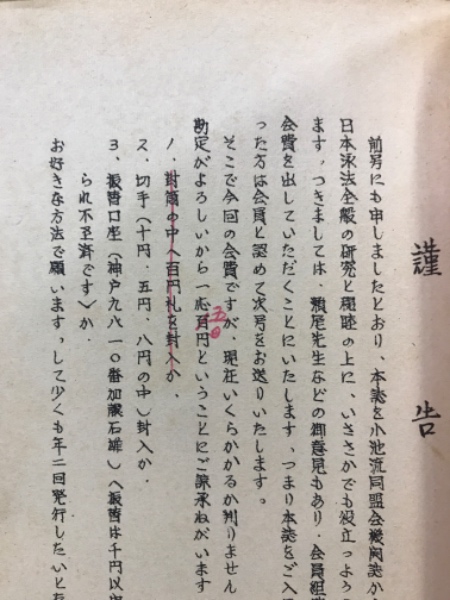 謹告
前号にも申しましたとおり、本誌を小池流同盟会機関誌か
日本泳法全般の研究と親睦の上に、いささかでも役立つよう
ます。つきましては、瀬尾先生などの御意見もあり、会員組
会費を出していただくことにいたします。つまり本誌をご入
った方は会員と認めて次号をお送りいたします。
そこで今回の会費ですが、現在いくらかかるか判りません
勘定がよろしいから一応百円ということにご諒承ねがいます
五〇
1、封筒の中へ百円札を封入か、
2、切手(十円、五円、八円の中)封入か、
3、振替口座(神戸九八一〇番加藤石雄)へ振替は千円以
られ不経済です)か、
お好きな方法で願います。して少くも年二回発行したいと